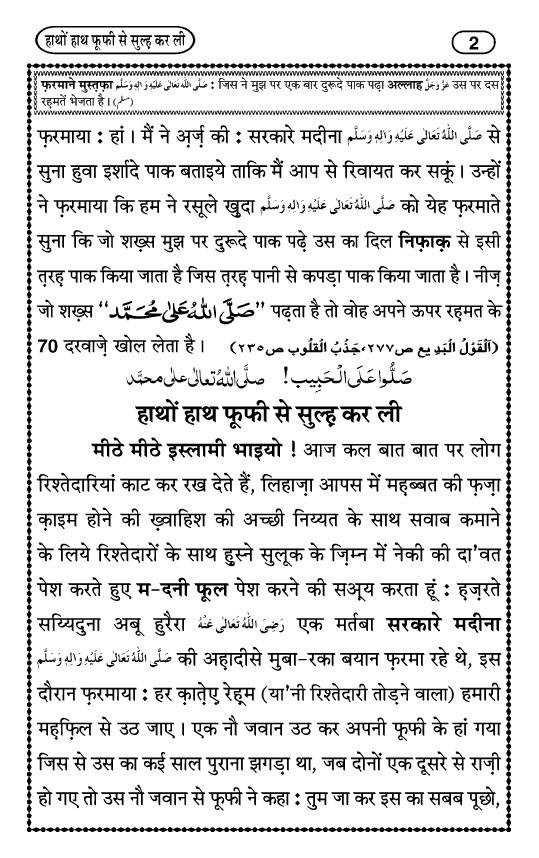 हाथों हाथ फूफी से सुल्ह़ कर ली
2
फ़रमाने मुस्त़फ़ा صَلَّى اللهُ تَعَالٰى عَلَيْهِ وَاٰلِهٖ وَسَلَّم : जिस ने मुझ पर एक बार दुरूदे पाक पढ़ा अल्लाह عَزَّوَجَلَّ उस पर दस
रह़मतें भेजता है। (مسلم)
फ़रमाया : हां। मैं ने अ़र्ज़ की : सरकारे मदीना صَلَّى اللهُ تَعَالٰى عَلَيْهِ وَاٰلِهٖ وَسَلَّم से
सुना हुवा इर्शादे पाक बताइये ताकि मैं आप से रिवायत कर सकूं। उन्हों
ने फ़रमाया कि हम ने रसूले ख़ुदा صَلَّى اللهُ تَعَالٰى عَلَيْهِ وَاٰلِهٖ وَسَلَّم को येह फ़रमाते
सुना कि जो शख़्स मुझ पर दुरूदे पाक पढ़े उस का दिल निफ़ाक़ से इसी
त़रह़ पाक किया जाता है जिस त़रह़ पानी से कपड़ा पाक किया जाता है। नीज़
जो शख़्स "صَلَّى اللهُ عَلٰى مُحَمَّد" पढ़ता है तो वोह अपने ऊपर रह़मत के
70 दरवाज़े खोल लेता है। (اَلْقَوْلُ الْبَدِيع ص٢٧٧، جَذْبُ الْقُلُوب ص٢٣٥)
صَلُّوا عَلَى الْحَبِيب! صلَّى اللهُ تعالٰى على محمَّد
हाथों हाथ फूफी से सुल्ह़ कर ली
मीठे मीठे इस्लामी भाइयो ! आज कल बात बात पर लोग
रिश्तेदारियां काट कर रख देते हैं, लिहाज़ा आपस में मह़ब्बत की फ़ज़ा
क़ाइम होने की ख़्वाहिश की अच्छी निय्यत के साथ सवाब कमाने
के लिये रिश्तेदारों के साथ हुस्ने सुलूक के ज़िम्न में नेकी की दा'वत
पेश करते हुए म-दनी फूल पेश करने की सअ़्य करता हूं : ह़ज़रते
सय्यिदुना अबू हुरैरा رَضِىَ اللهُ تَعَالٰى عَنْهُ एक मर्तबा सरकारे मदीना
صَلَّى اللهُ تَعَالٰى عَلَيْهِ وَاٰلِهٖ وَسَلَّم की अह़ादीसे मुबा-रका बयान फ़रमा रहे थे, इस
दौरान फ़रमाया : हर क़ात़ेए रेह़्म (या'नी रिश्तेदारी तोड़ने वाला) हमारी
मह़फ़िल से उठ जाए। एक नौ जवान उठ कर अपनी फूफी के हां गया
जिस से उस का कई साल पुराना झगड़ा था, जब दोनों एक दूसरे से राज़ी
हो गए तो उस नौ जवान से फूफी ने कहा : तुम जा कर इस का सबब पूछो,